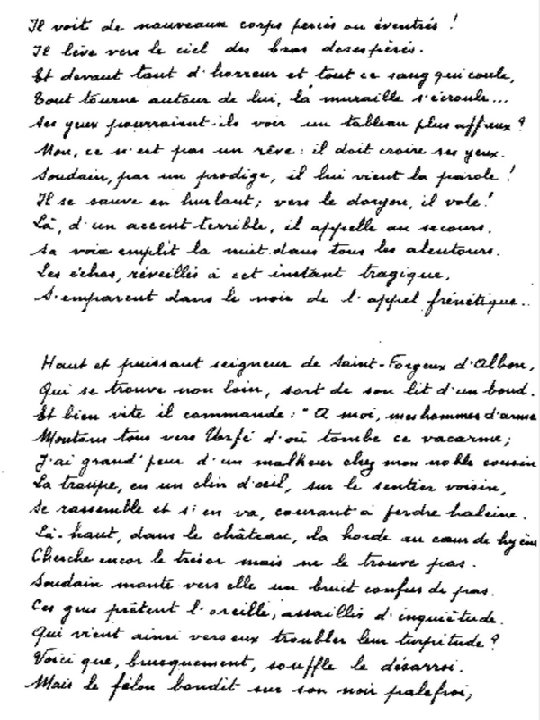 Il voit de nouveaux corps percés ou éventrés !
Il lève vers le ciel des bras désespérés.
Et devant tant d'horreur et tout ce sang qui coule,
Tout tourne autour de lui, la muraille s'écroule...
Ses yeux pourraient-ils voir un tableau plus affreux ?
Non, ce n'est pas un rêve : il doit croire ses yeux.
Soudain, par un prodige, il lui vient la parole !
Il se sauve en hurlant ; vers le donjon, il vole !
Là, d'un accent terrible, il appelle au secours.
Sa voix emplit la nuit dans tous les alentours.
Les échos, réveillés à cet instant tragique,
S'emparent dans le noir de l'appel frénétique...
Haut et puissant seigneur de Saint-Forgeux d'Albon,
Qui se trouve non loin, sort de son lit d'un bond.
Et bien vite il commande : "A moi, mes hommes d'arme
Montons tous vers Urfé d'où tombe ce vacarme ;
J'ai grand'peur d'un malheur chez mon noble cousin
La troupe, en un clin d'oeil, sur le sentier voisin,
Se rassemble et s'en va, courant à perdre haleine.
Là-haut, dans le château, la horde au coeur de hyène
Cherche encor le trésor mais ne le trouve pas.
Soudain monte vers elle un bruit confus de pas.
Ces gens prêtent l'oreille, assaillis d'inquiétude.
Qui vient ainsi vers eux troubler leur turpitude ?
Voici que, brusquement, souffle le désarroi.
Mais le félon bondit sur son noir palefroi,